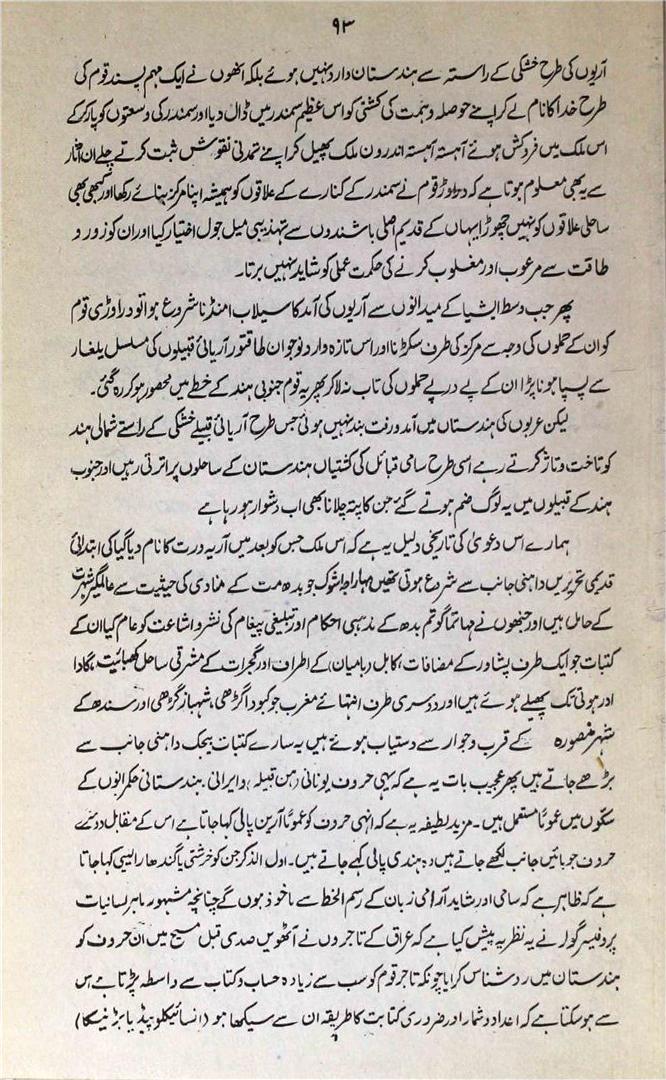 ۹۳
آریوں کی طرح خشکی کے راستہ سے ہندستان دارد نہیں ہوئے بلکہ انھوں نے ایک مہم پسند قوم کی
طرح خدا کا نام لے کر اپنے حوصلہ وہمت کی کشتی کو اس عظیم سمندر میں ڈال دیا اور سمندر کی وسعتوں کو پار کر کے
اس ملک میں فروکش ہوئے آہستہ آہستہ اندرون ملک پھیل کر اپنے تمدنی نقوش ثبت کرتے چلے ان آثار
سے یہ بھی معلوم ہوتا ہے کہ دراوڑ قوم نے سمندر کے کنارے کے علاقوں کو ہمیشہ اپنا مرکز بنائے رکھا اور کبھی بھی
ساحلی علاقوں کو نہیں چھوڑا یہاں کے قدیم اصلی باشندوں سے تہذیبی میل جول اختیار کیا اور ان کو زور و
طاقت سے مرعوب اور مغلوب کرنے کی حکمت عملی کو شاید نہیں برتا۔
پھر جب وسط ایشیا کے میدانوں سے آریوں کی آمد کا سیلاب امنڈنا شروع ہوا تو دراوڑی قوم
کو ان کے حملوں کی وجہ سے مرکز کی طرف سکڑنا اور اس تازہ وارد نوجوان طاقتور آریائی قبیلوں کی مسلسل یلغار
سے پسپا ہونا پڑا ان کے پے درپے حملوں کی تاب نہ لا کر پھر یہ قوم جنوبی ہند کے خطے میں محصور ہو کر رہ گئی۔
لیکن عربوں کی ہندستاں میں آمد ورفت بند نہیں ہوئی جس طرح آریائی قبیلے خشکی کے راستے شمالی ہند
کو تاخت وتاز کرتے رہے اسی طرح سامی قبائل کی کشتیاں ہندستان کے ساحلوں پر اترتی رہیں اور جنوب
ہند کے قبیلوں میں یہ لوگ ضم ہوتے گئے جن کا پتہ چلانا بھی اب دشوار ہو رہا ہے
ہمارے اس دعویٰ کی تاریخی دلیل یہ ہے کہ اس ملک جس کو بعد میں آریہ ورت کا نام دیا گیا کی ابتدائی
قدیمی تحریریں داہنی جانب سے شروع ہوتی تھیں مہاراجہ اشوک جو بدھ مت کے منادی کی حیثیت سے عالمگیر شہرت
کے حامل ہیں اور جنھوں نے مہاتما گوتم بدھ کے مذہبی احکام اور تبلیغی پیغام کی نشر و اشاعت کو عام کیا ان کے
کتبات جو ایک طرف پشاور کے مضافات، کابل (بامیان) کے اطراف اور گجرات کے مشرقی ساحل کھمبائیت،
اور ہوتی تک پھیلے ہوئے ہیں اور دوسری طرف انتہائے مغرب جو کبوداگڑھی، شہباز گڑھی اور سندھ کے
شہر منصورہ کے قرب وجوار سے دستیاب ہوئے ہیں یہ سارے کتبات بیجک داہنی جانب سے
پڑھے جاتے ہیں پھر عجیب بات یہ ہے کہ یہی حروف یونانی (ہن قبیلہ) وایرانی، ہندستانی حکمرانوں کے
سکوں میں عموماً مستعمل ہیں۔ مزید لطیفہ یہ ہے کہ انہی حروف کو عموماً آرین پالی کہا جاتا ہے اس کے مقابل دوسرے
حروف جو بائیں جانب لکھے جاتے ہیں وہ ہندی پالی کہے جاتے ہیں۔ اول الذکر جن کو خرشتی یا گندھارا لیسی کہا جاتا
ہے کہ ظاہر ہے کہ سامی اور شاید آرامی زبان کے رسم الخط سے ماخوذ ہوں گے چنانچہ مشہور ماہر لسانیات
پروفیسر گولر نے یہ نظریہ پیش کیا ہے کہ عراق کے تاجروں نے آٹھویں صدی قبل مسیح میں ان حروف کو
ہندستان میں روشناس کرایا چونکہ تاجر قوم کو سب سے زیادہ حساب وکتاب سے واسطہ پڑتا ہے اس
سے ہو سکتا ہے کہ اعداد وشمار اور ضروری کتابت کا طریقہ ان سے سیکھا ہو (انسائیکلوپیڈیا بڑنیسکا)